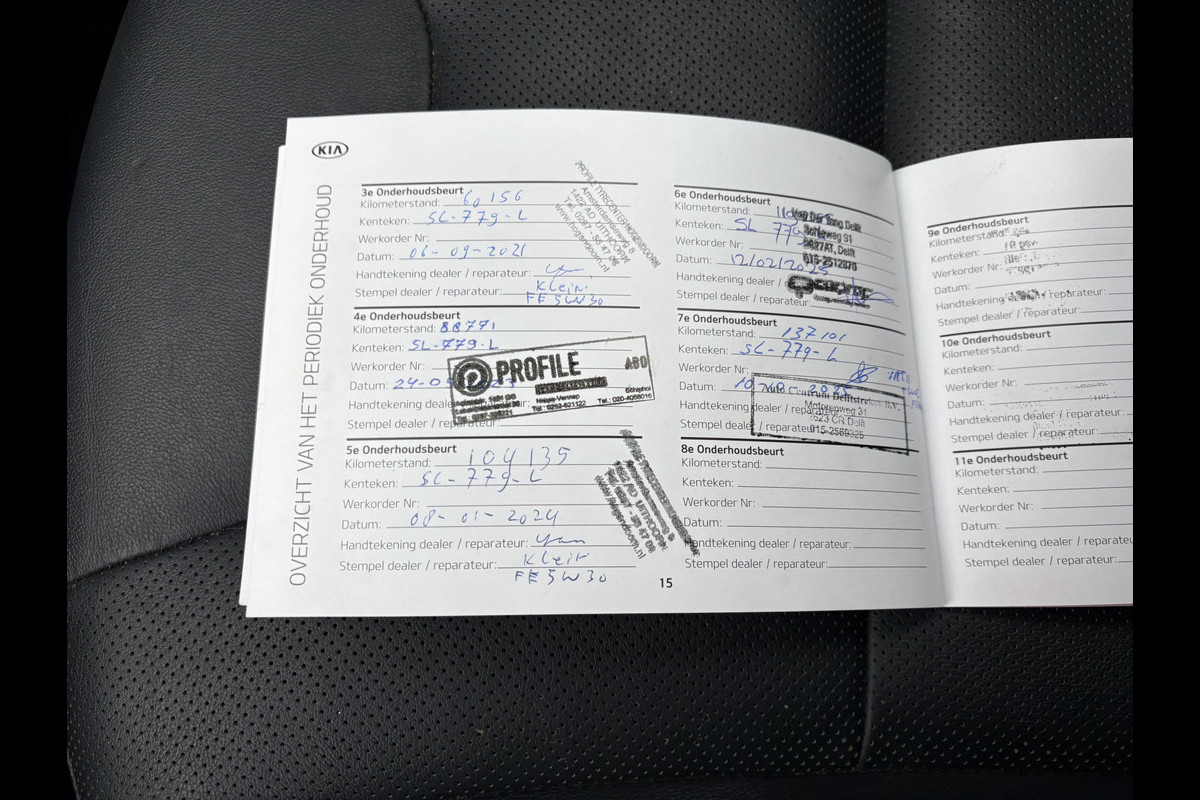 KIA
OVERZICHT VAN HET PERIODIEK ONDERHOUD
3e Onderhoudsbeurt
Kilometerstand: 60156
Kenteken: SL-779-L
Werkorder Nr:
Datum: 06-09-2021
Handtekening dealer / reparateur:
Stempel dealer / reparateur: Klein
FE 5W30
PROFILE TYRECENTER HOOGENDOORN
Amsterdamseweg 8
1422 AD UITHOORN
www.hogendoorn.nl
4e Onderhoudsbeurt
Kilometerstand: 88771
Kenteken: SL-779-L
Werkorder Nr:
Datum: 24-0
Handtekening dealer / reparateur:
Stempel dealer / reparateur:
PROFILE
Nieuw-Vennep
Tel.: 0252-621122
Schiphol
Tel.: 020-4056016
5e Onderhoudsbeurt
Kilometerstand: 104135
Kenteken: SL-779-L
Werkorder Nr:
Datum: 08-01-2024
Handtekening dealer / reparateur:
Stempel dealer / reparateur: Klein
FE 5W30
1422 AD UITHOORN
15
6e Onderhoudsbeurt
Kilometerstand:
Kenteken: SL 779
Werkorder Nr:
Datum: 12/02/2025
Handtekening dealer /
Stempel dealer / reparateur:
Schieweg 91
2627AT, Delft
015-2512870
7e Onderhoudsbeurt
Kilometerstand: 137101
Kenteken: SL-779-L
Werkorder Nr:
Datum: 10 2025
Handtekening dealer / reparateur:
Stempel dealer / reparateur:
Auto Centrum Delftstreken B.V.
Motorenweg 31
2623 CR Delft
015-2569325
8e Onderhoudsbeurt
Kilometerstand:
Kenteken:
Werkorder Nr:
Datum:
Handtekening dealer / reparateur:
Stempel dealer / reparateur:
9e Onderhoudsbeurt
Kilometerstand:
Kenteken:
Werkorder Nr:
Datum:
Handtekening dealer / reparateur:
Stempel dealer / reparateur:
10e Onderhoudsbeurt
Kilometerstand:
Kenteken:
Werkorder Nr:
Datum:
Handtekening dealer / reparateur:
Stempel dealer / reparateur:
11e Onderhoudsbeurt
Kilometerstand:
Kenteken:
Werkorder Nr:
Datum:
Handtekening dealer / reparateu
Stempel dealer / reparateur: